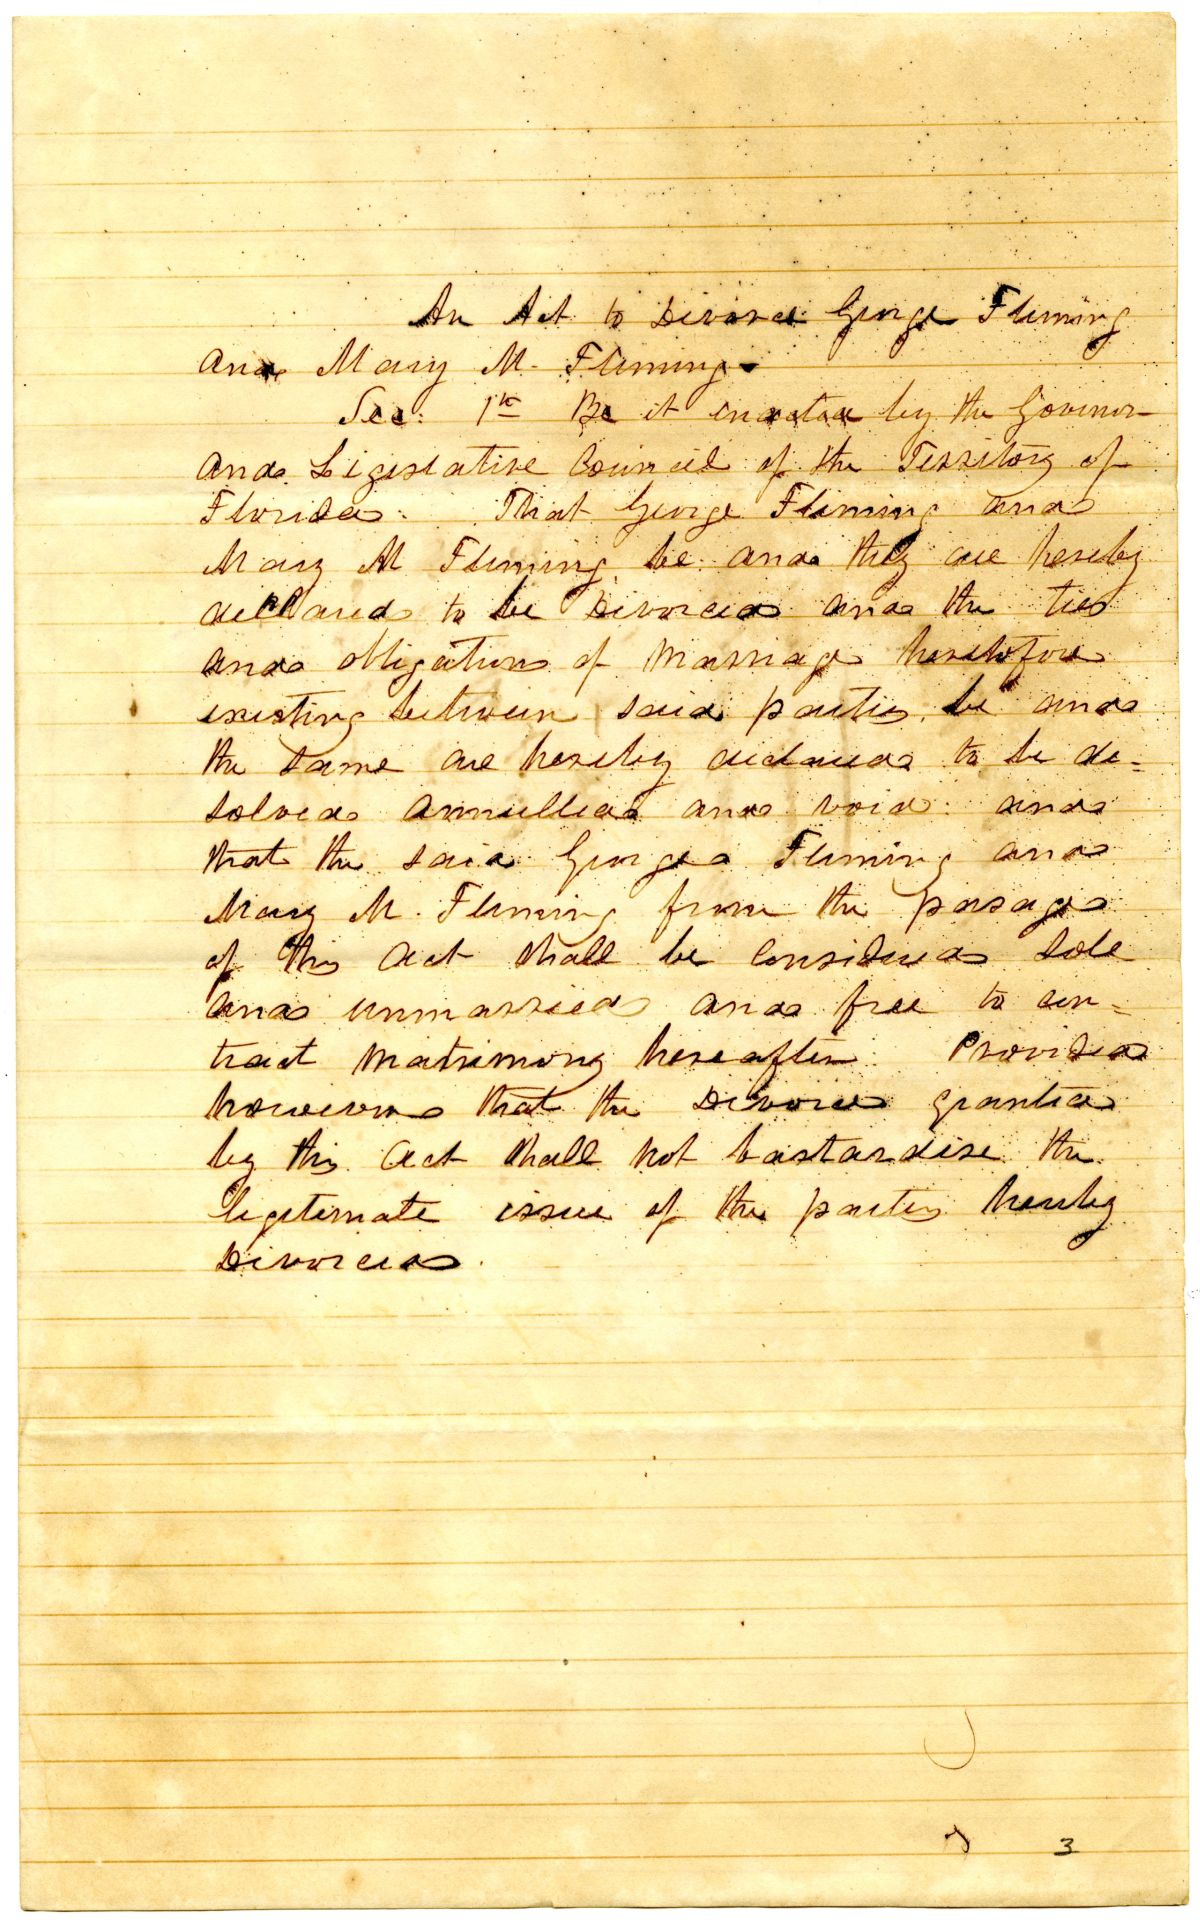 An Act to Divorce George Fleming
and Mary M. Fleming
Sec: 1st Be it enacted by the Govenor
and Legislative Council of the Territory of
Florida. That George Fleming and
Mary M Fleming be and they are hereby
declared to be Divorced and the ties
and obligations of Marriage heretofore
existing between said parties be and
the same are hereby declared to be de=
solved annulled and void and
that the said George Fleming and
Mary M. Fleming from the passage
of this Act shall be Considered Sole
and unmarried and free to con=
tract Matrimony hereafter. Provided
however that the Divorce granted
by this Act shall not bastardise the
legitimate issue of the parties hereby
Divorced.
3